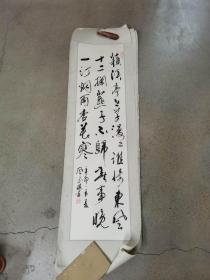 蘇溪亭上草漫々誰倚東風
十二闌燕子不歸春事晚
一汀烟雨杏花寒